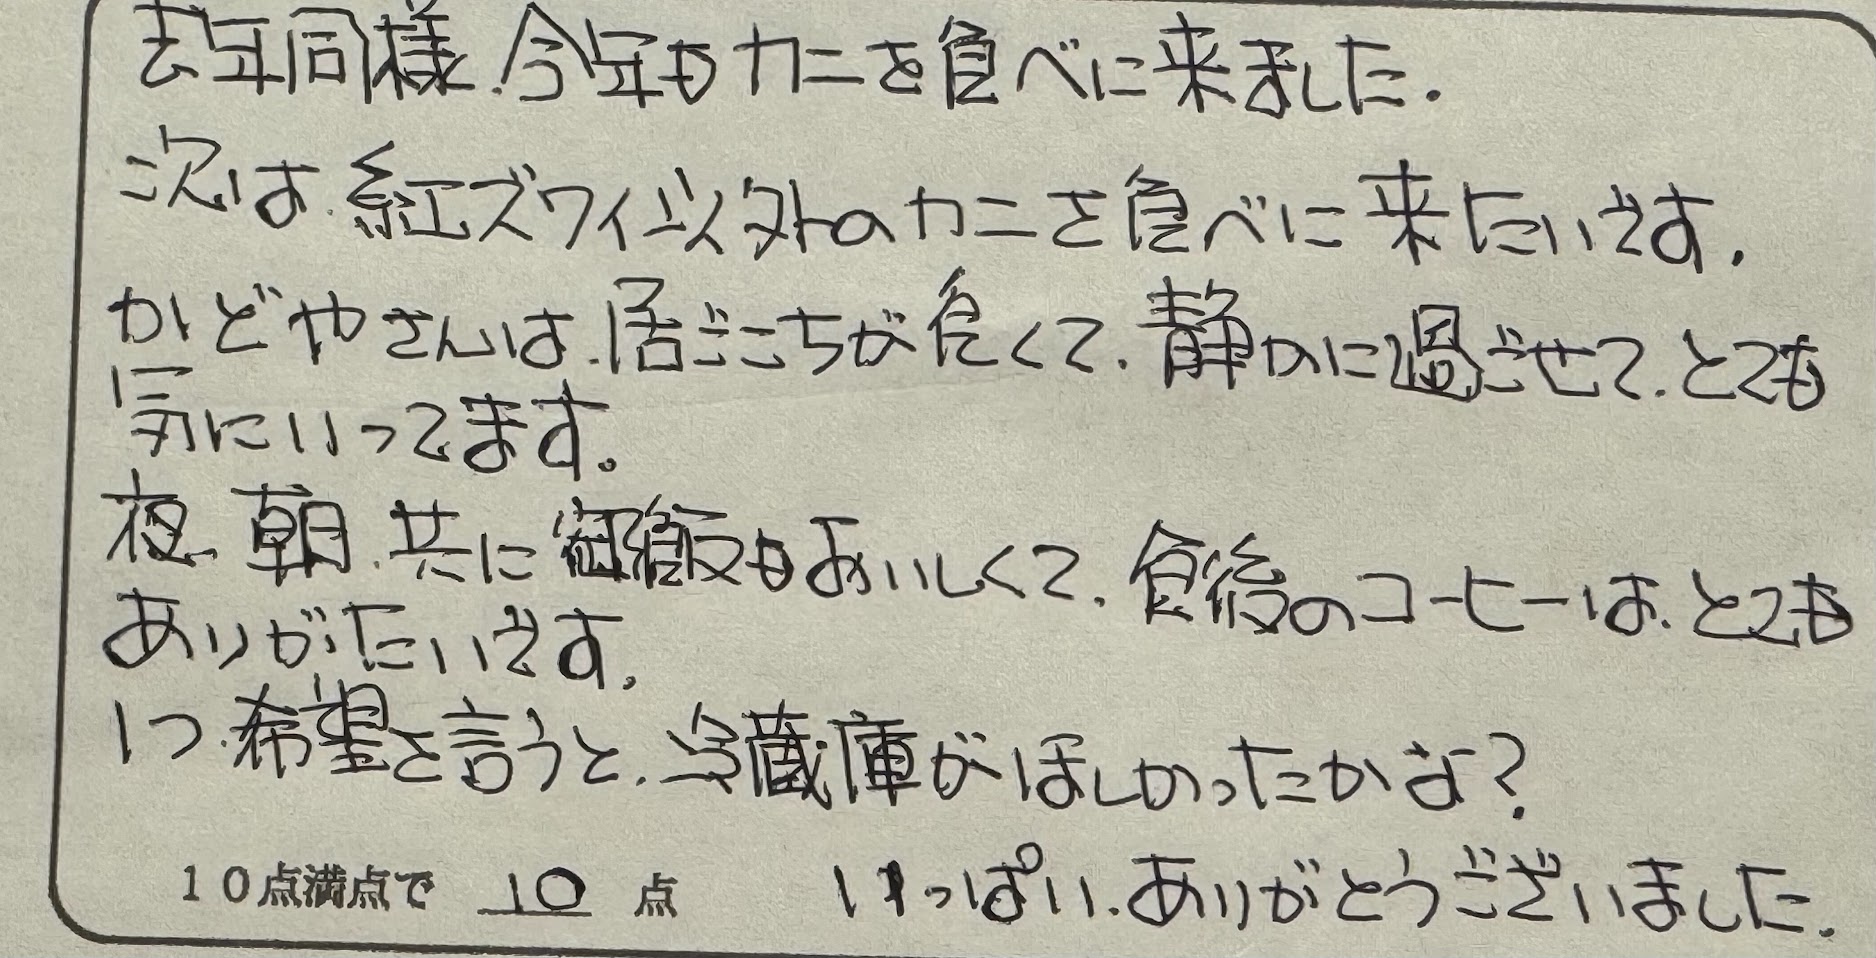 去年同様、今年もカニを食べに来ました。
次は、紅ズワイ以外のカニを食べに来たいです。
かどやさんは、居ごこちが良くて、静かに過ごせて、とても
気にいってます。
夜、朝、共に御飯もおいしくて、食後のコーヒーは、とても
ありがたいです。
1つ、希望を言うと、冷蔵庫がほしかったかな?
10点満点で 10 点 いっぱい、ありがとうございました。